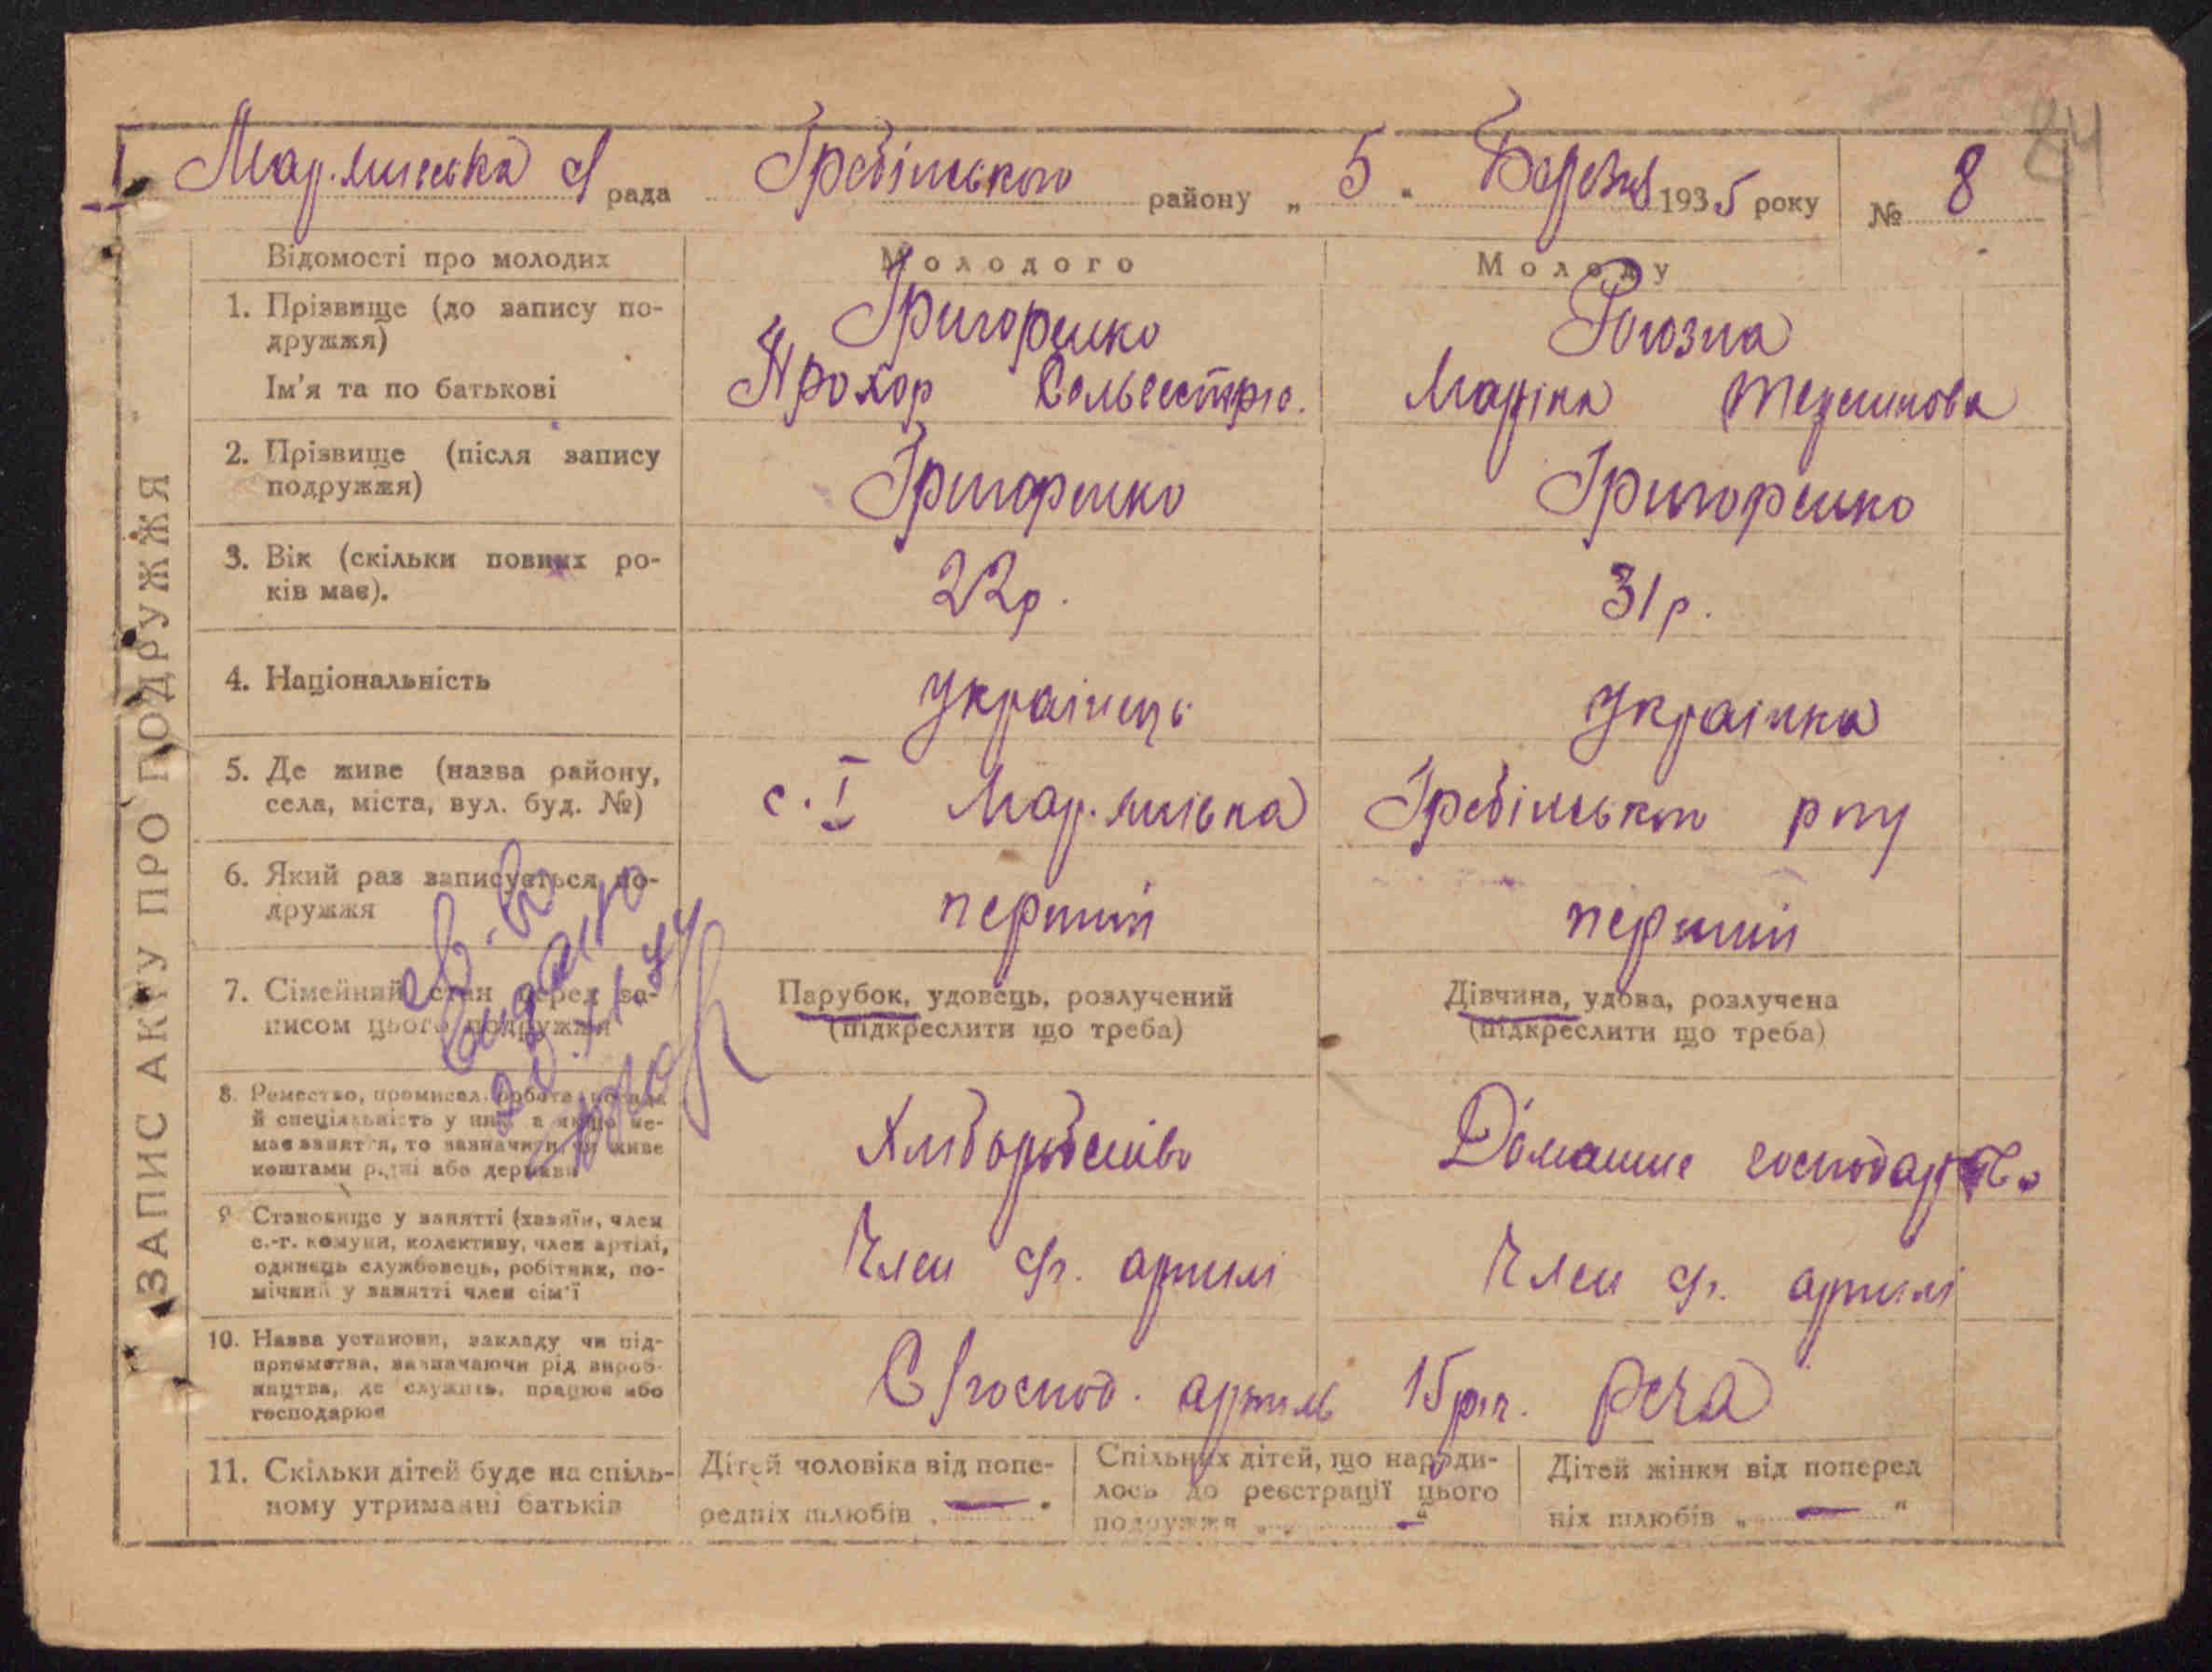 84
І Мар.линська С/ рада Гребінського району „ 5 " Березня 1935 року № 8
ЗАПИС АКТУ ПРО ПОДРУЖЖЯ
Відомості про молодих Молодого Молоду
1. Прізвище (до запису по-
дружжя) Григоренко Рогозна
Ім'я та по батькові Прохор Марина
2. Прізвище (після запису
подружжя) Григоренко Григоренко
3. Вік (скільки повних ро-
ків має). 22 р. 31 р.
4. Національність Українець Українка
5. Де живе (назва району,
села, міста, вул. буд. №) с. І Гребінського р-ну
6. Який раз записується по-
дружжя перший перший
7. Сімейний стан перед за-
писом цього подружжя
Парубок, удовець, розлучений
(підкреслити що треба)
Дівчина, удова, розлучена
(підкреслити що треба)
8. Ремество, промисел, робота, посада
й спеціяльність у ній, а якщо не-
має заняття, то зазначити чи живе
коштами рідні або держави
Домашне господарство
9. Становище у занятті (хазяїн, член
с.-г. комуни, колективу, член артілі,
одинець службовець, робітник, по-
мічний у занятті член сім'ї
Член с/г. артилі Член с/г. артилі
10. Назва установи, закладу чи під-
приємства, зазначаючи рід вироб-
ництва, де служить, працює або
господарює
С/господ. артиль 15 річ. РСЧА
11. Скільки дітей буде на спіль-
ному утриманні батьків
Дітей чоловіка від попе-
редніх шлюбів „ — "
Спільних дітей, що народи-
лось до реєстрації цього
подружжя „ — "
Дітей жінки від поперед
ніх шлюбів „ — "